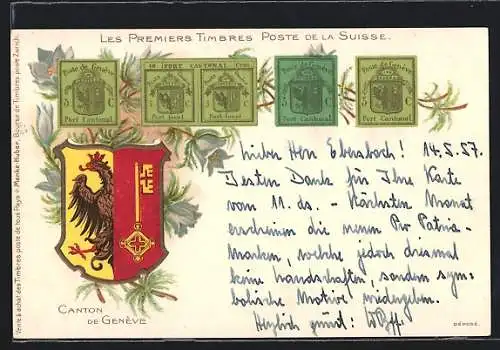 LES PREMIERS TIMBRES POSTE DE LA SUISSE.
Poste de Genève
5 C
Port Cantonal
10 PORT CANTONAL Cent.
Poste de Genève Poste de Genève
5 C 5 C
Port local Port local
Poste de Genève
5 C
Port Cantonal
Poste de Genève
5 C
Port Cantonal
Lieber Herr Ebersbach! 14.5.57
Besten Dank für Ihre Karte
vom 11. ds. - Nächsten Monat
erscheinen die neuen Pro Patria-
Marken, welche jedoch diesmal
keine Landschaften, sondern sym-
bolische Motive wiedergeben.
Herzlich grüsst:
CANTON
DE GENÈVE
DÉPOSÉ.
Vente & achat des Timbres poste de tous Pays Menke-Huber, Bourse de Timbres poste Zurich.